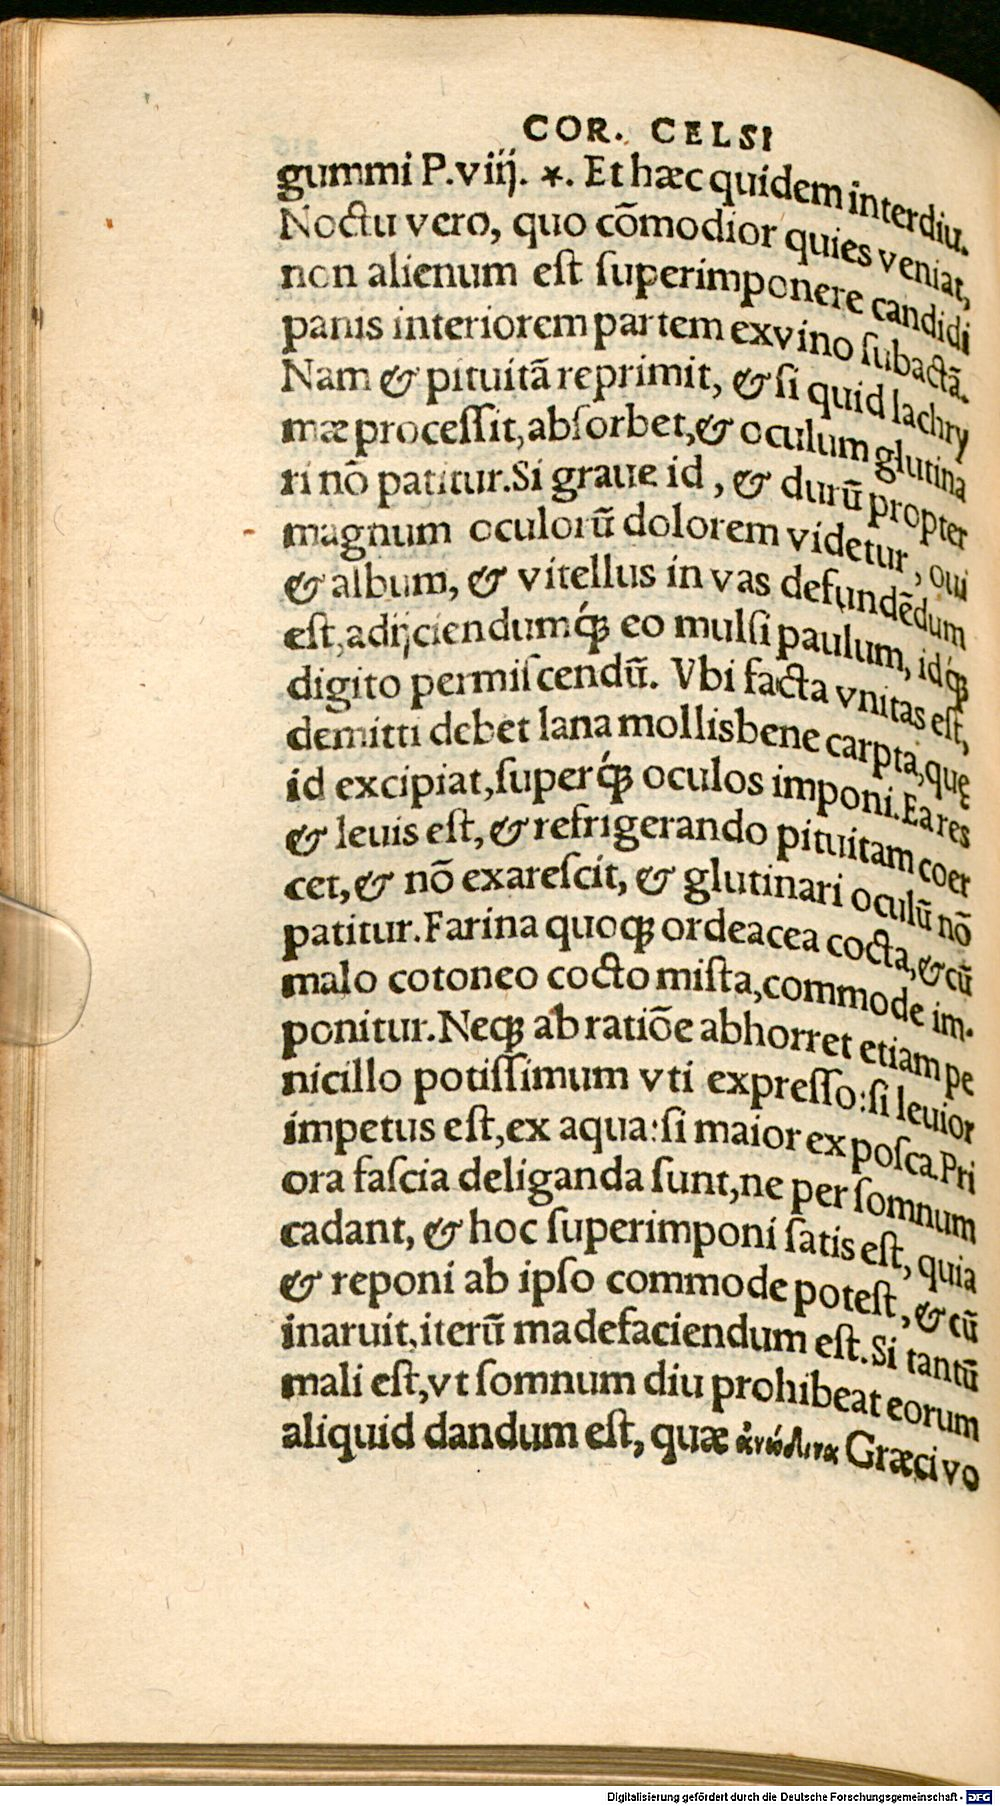 COR. CELSI
gummi P.viij. *. Et hæc quidem interdiu.
Noctu vero, quo cõmodior quies veniat,
non alienum est ſuperimponere candidi
panis interiorem partem ex vino ſubactã.
Nam & pituitã reprimit, & ſi quid lachry
mæ proceſſit, abſorbet, & oculum glutina
ri nõ patitur. Si graue id, & durũ propter
magnum oculorũ dolorem videtur, oui
& album, & vitellus in vas defundẽdum
eſt, adijciendumq́ꝫ eo mulſi paulum, idq́ꝫ
digito permiſcendũ. Vbi facta vnitas eſt,
demitti debet lana mollis bene carpta, quę
id excipiat, ſuperq́ꝫ oculos imponi. Ea res
& leuis eſt, & refrigerando pituitam coer
cet, & nõ exareſcit, & glutinari oculũ nõ
patitur. Farina quoqꝫ ordeacea cocta, & cũ
malo cotoneo cocto miſta, commode im-
ponitur. Neqꝫ ab ratiõe abhorret etiam pe
nicillo potiſſimum vti expreſſo: ſi leuior
impetus eſt, ex aqua: ſi maior ex poſca. Pri
ora faſcia deliganda ſunt, ne per ſomnum
cadant, & hoc ſuperimponi ſatis eſt, quia
& reponi ab ipſo commode poteſt, & cũ
inaruit, iterũ madefaciendum eſt. Si tantũ
mali eſt, vt ſomnum diu prohibeat eorum
aliquid dandum eſt, quæ ἀνώδυνα Græci vo
Digitalisierung gefördert durch die Deutsche Forschungsgemeinschaft - DFG